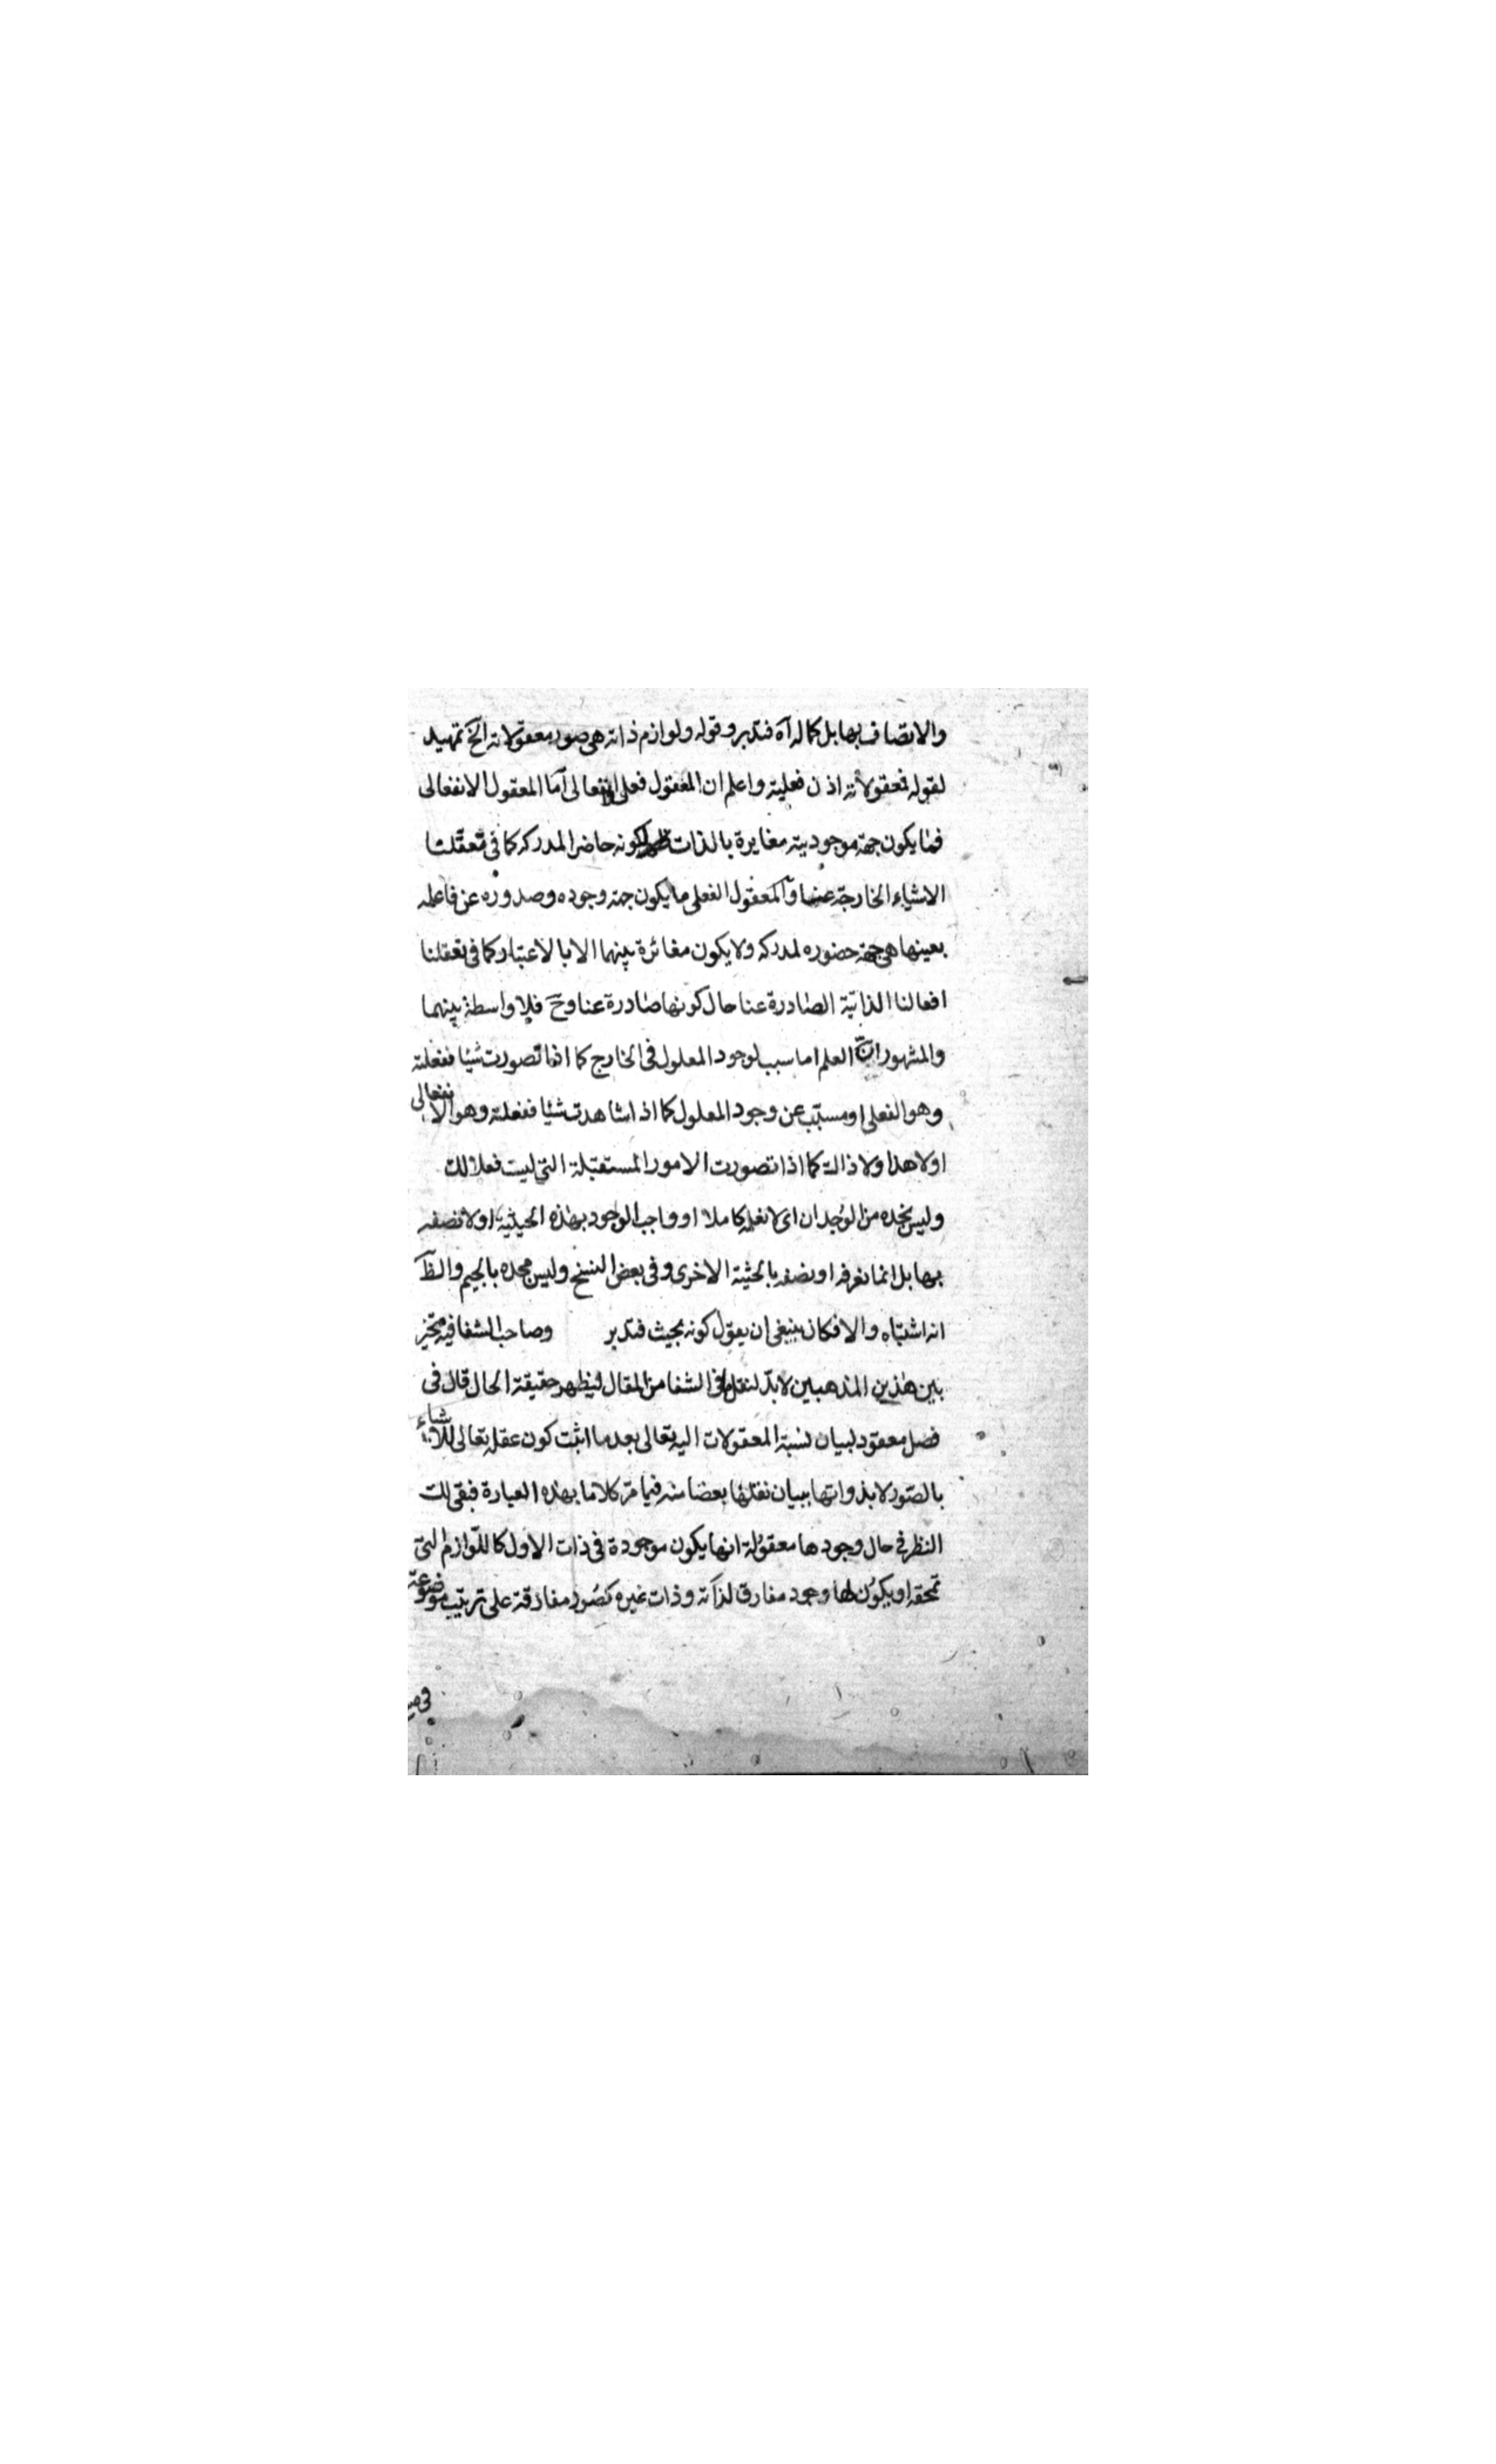 والاتصاف بها بل كماله آه فتدبر وقوله ولوازم ذاته هى صور معقولاته الخ تمهيد
لقوله فمعقولاته اذن فعلية واعلم ان المعقول فعلى او انفعالى اما المعقول الانفعالى
فما يكون جهة موجوديته مغايرة بالذات لكونه حاضرا لمدركه كما فى تعقلنا
الاشياء الخارجة عنا والمعقول الفعلى ما يكون جهة وجوده وصدوره عن فاعله
بعينها هى جهة حضوره لمدركه ولا يكون مغائرة بينهما الا بالاعتبار كما فى تعقلنا
افعالنا الذاتية الصادرة عنا حال كونها صادرة عنا وح فلا واسطة بينهما
والمشهور ان العلم اما سبب لوجود المعلول فى الخارج كما اذا تصورت شيئا ففعلته
وهو الفعلى او مسبب عن وجود المعلول كما اذا شاهدت شيئا ففعلته وهو الانفعالى
اولا هذا ولا ذاك كما اذا تصورت الامور المستقبلة التى ليست فعلا لك
وليس نجده من الوجدان اى لا نعلمه كاملا او واجب الوجود بهذه الحيثية او لا نصفه
بها بل انما نعرفه او نصفه بالحيثية الاخرى وفى بعض النسخ وليس مجده بالجيم والظ
انه اشتباه والا فكان ينبغى ان يقول كونه بحيث فتدبر وصاحب الشفا فيه متحيز
بين هذين المذهبين لابد لنقل ما فى الشفا من المقال ليظهر حقيقة الحال قال فى
فصل معقود لبيان نسبة المعقولات اليه تعالى بعد ما اثبت كون عقله تعالى للاشياء
بالصور لا بذواتها ببيان نقلنا بعضا منه فيما مر كلاما بهذه العبارة فبقى لك
النظر فى حال وجودها معقولة انها يكون موجودة فى ذات الاول كاللوازم التى
تلحقه او يكون لها وجود مفارق لذاته وذات غيره كصور مفارقة على ترتيب موضوعة